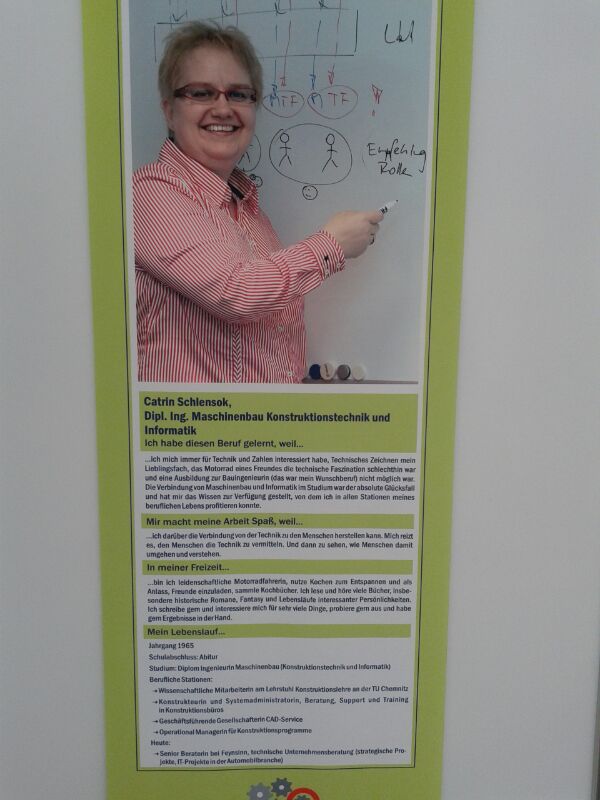 TF
TF
Empfehlung
Rolle
Catrin Schlensok,
Dipl. Ing. Maschinenbau Konstruktionstechnik und
Informatik
Ich habe diesen Beruf gelernt, weil...
...ich mich immer für Technik und Zahlen interessiert habe, Technisches Zeichnen mein
Lieblingsfach, das Motorrad eines Freundes die technische Faszination schlechthin war
und eine Ausbildung zur Bauingenieurin (das war mein Wunschberuf) nicht möglich war.
Die Verbindung von Maschinenbau und Informatik im Studium war der absolute Glücksfall
und hat mir das Wissen zur Verfügung gestellt, von dem ich in allen Stationen meines
beruflichen Lebens profitieren konnte.
Mir macht meine Arbeit Spaß, weil...
...ich darüber die Verbindung von der Technik zu den Menschen herstellen kann. Mich reizt
es, den Menschen die Technik zu vermitteln. Und dann zu sehen, wie Menschen damit
umgehen und verstehen.
In meiner Freizeit...
...bin ich leidenschaftliche Motorradfahrerin, nutze Kochen zum Entspannen und als
Anlass, Freunde einzuladen, sammle Kochbücher. Ich lese und höre viele Bücher, insbe-
sondere historische Romane, Fantasy und Lebensläufe interessanter Persönlichkeiten.
Ich schreibe gern und interessiere mich für sehr viele Dinge, probiere gern aus und habe
gern Ergebnisse in der Hand.
Mein Lebenslauf...
Jahrgang 1965
Schulabschluss: Abitur
Studium: Diplom Ingenieurin Maschinenbau (Konstruktionstechnik und Informatik)
Berufliche Stationen:
→ Wissenschaftliche Mitarbeiterin am Lehrstuhl Konstruktionslehre an der TU Chemnitz
→ Konstrukteurin und Systemadministratorin, Beratung, Support und Training
in Konstruktionsbüros
→ Geschäftsführende Gesellschafterin CAD-Service
→ Operational Managerin für Konstruktionsprogramme
Heute:
→ Senior Beraterin bei Feynsinn, technische Unternehmensberatung (strategische Pro-
jekte, IT-Projekte in der Automobilbranche)